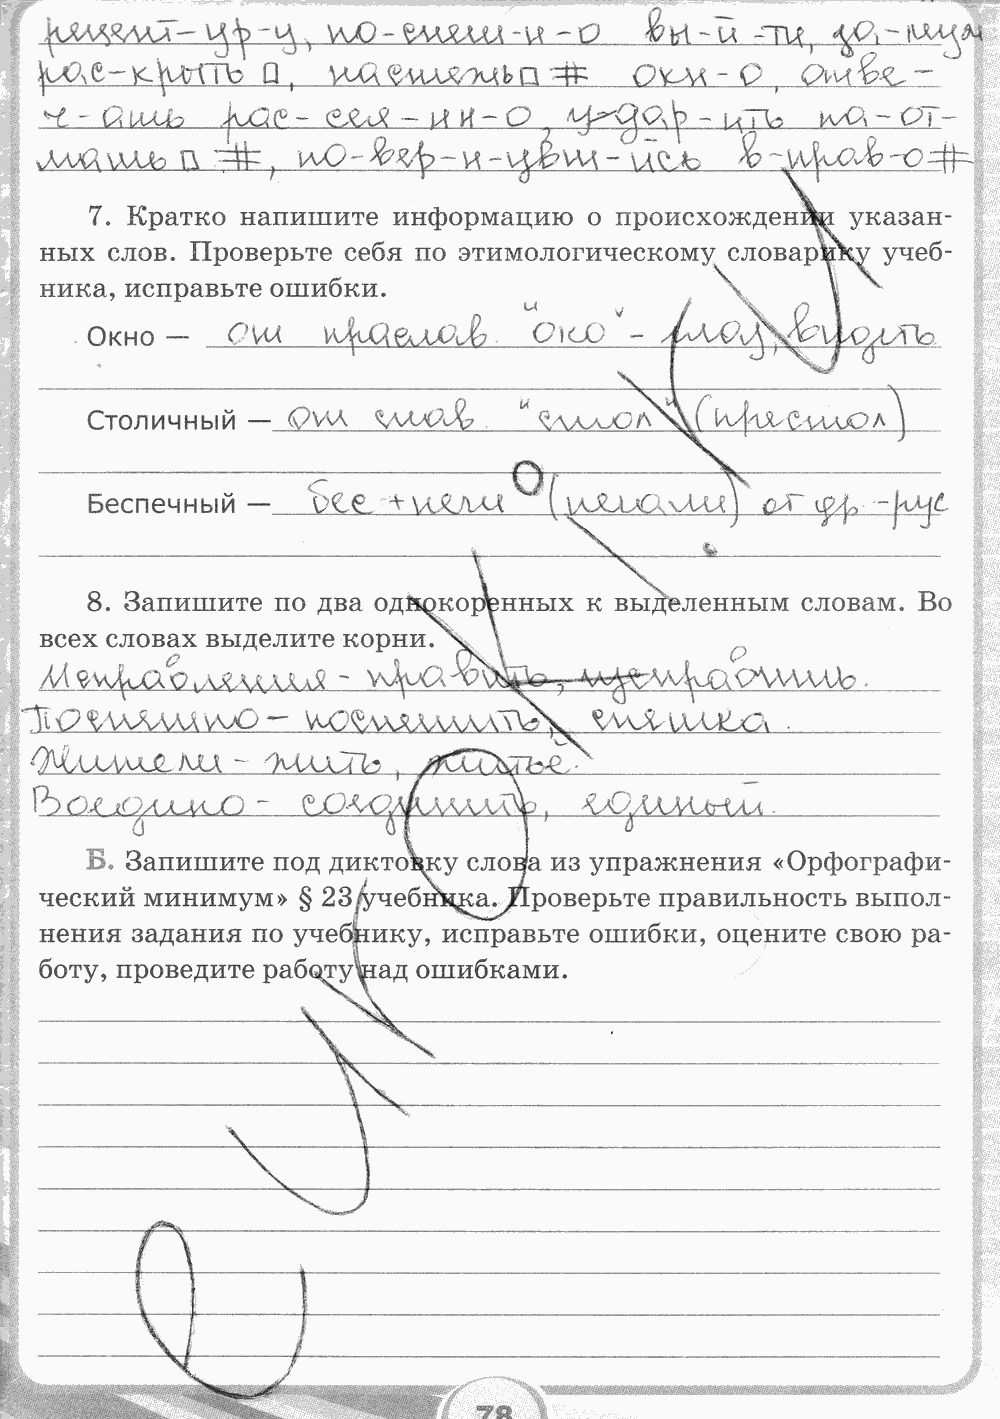 рецепт-ур-у, по-спеш-н-о вы-й-ти,
рас-крыть□, настежь□# окн-о, отве-
ч-ать рас-сея-нн-о, удар-ить на-от-
машь□#, по-вер-н-увш-ись в-прав-о#
7. Кратко напишите информацию о происхождении указан-
ных слов. Проверьте себя по этимологическому словарику учеб-
ника, исправьте ошибки.
Окно — от праслав. "око" - глаз, видеть
Столичный — от слав. "стол" (престол)
Беспечный — бес + печи (печали) от др.-рус
8. Запишите по два однокоренных к выделенным словам. Во
всех словах выделите корни.
править,
- поспешить,
Жители - жить, житьё.
Воедино - соединить, единый.
Б. Запишите под диктовку слова из упражнения «Орфографи-
ческий минимум» § 23 учебника. Проверьте правильность выпол-
нения задания по учебнику, исправьте ошибки, оцените свою ра-
боту, проведите работу над ошибками.
78